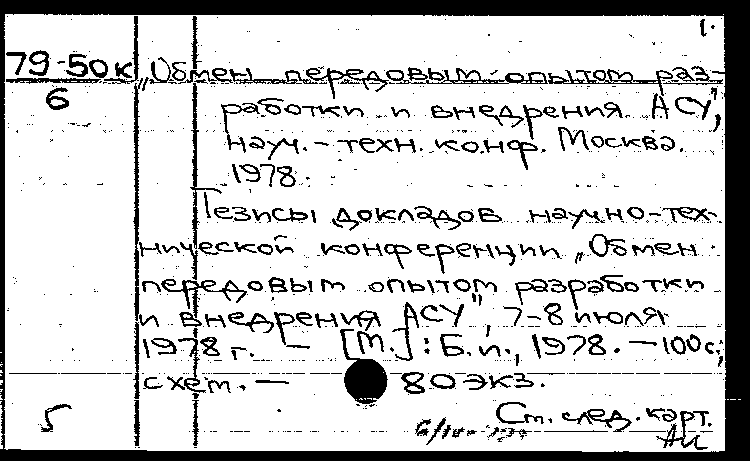 1.
79-50к „Обмен передовым опытом раз-
6
работки и внедрения АСУ",
науч.-техн. конф. Москва.
1978.
Тезисы докладов научно-тех-
нической конференции „Обмен
передовым опытом разработки
и внедрения АСУ", 7-8 июля
1978 г. — [М.]: Б.и., 1978. — 100 с.;
схем. — 80 экз.
Ст. след. карт.
5